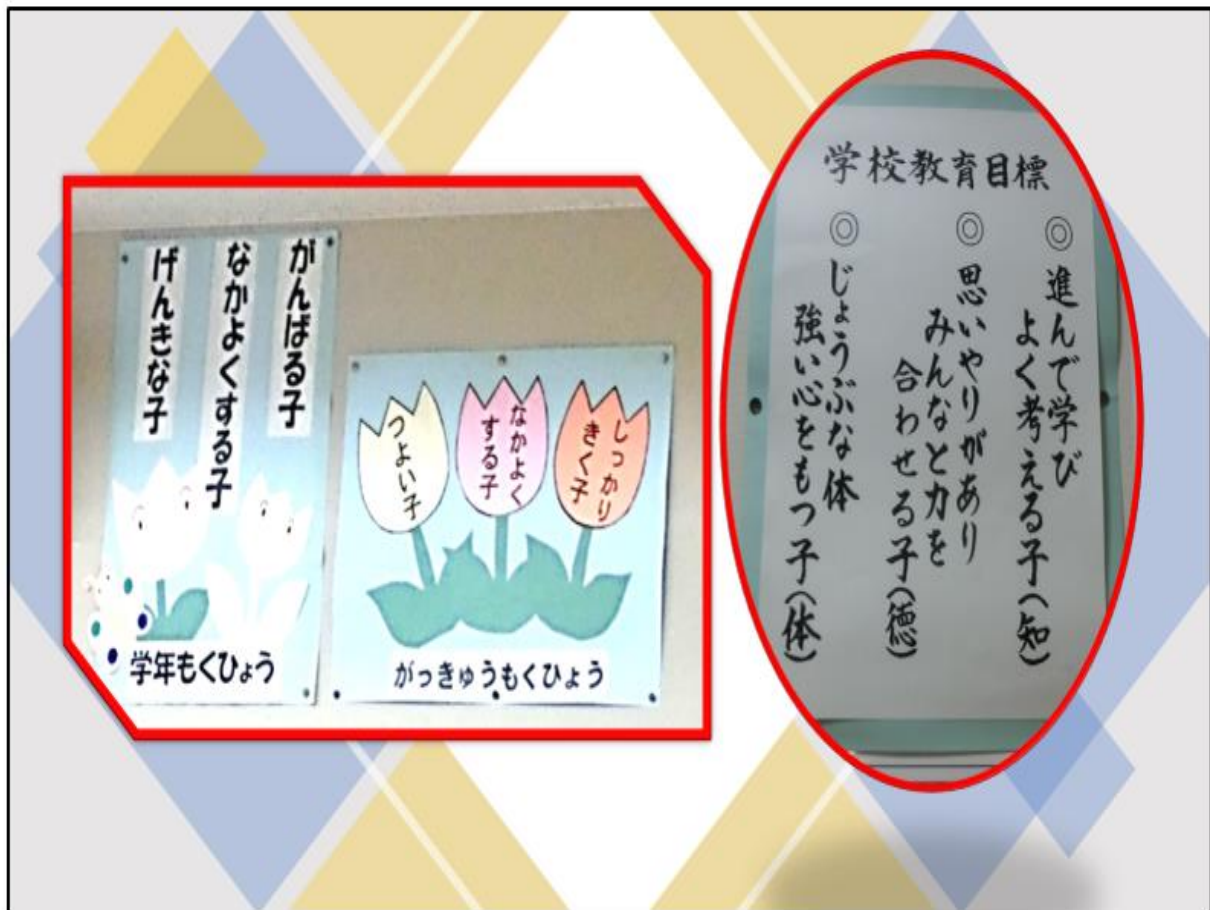 がんばる子
なかよくする子
げんきな子
学年もくひょう
しっかり
きく子
なかよく
する子
つよい子
がっきゅうもくひょう
学校教育目標
◎進んで学び
よく考える子(知)
◎思いやりがあり
みんなと力を
合わせる子(徳)
◎じょうぶな体
強い心をもつ子(体)